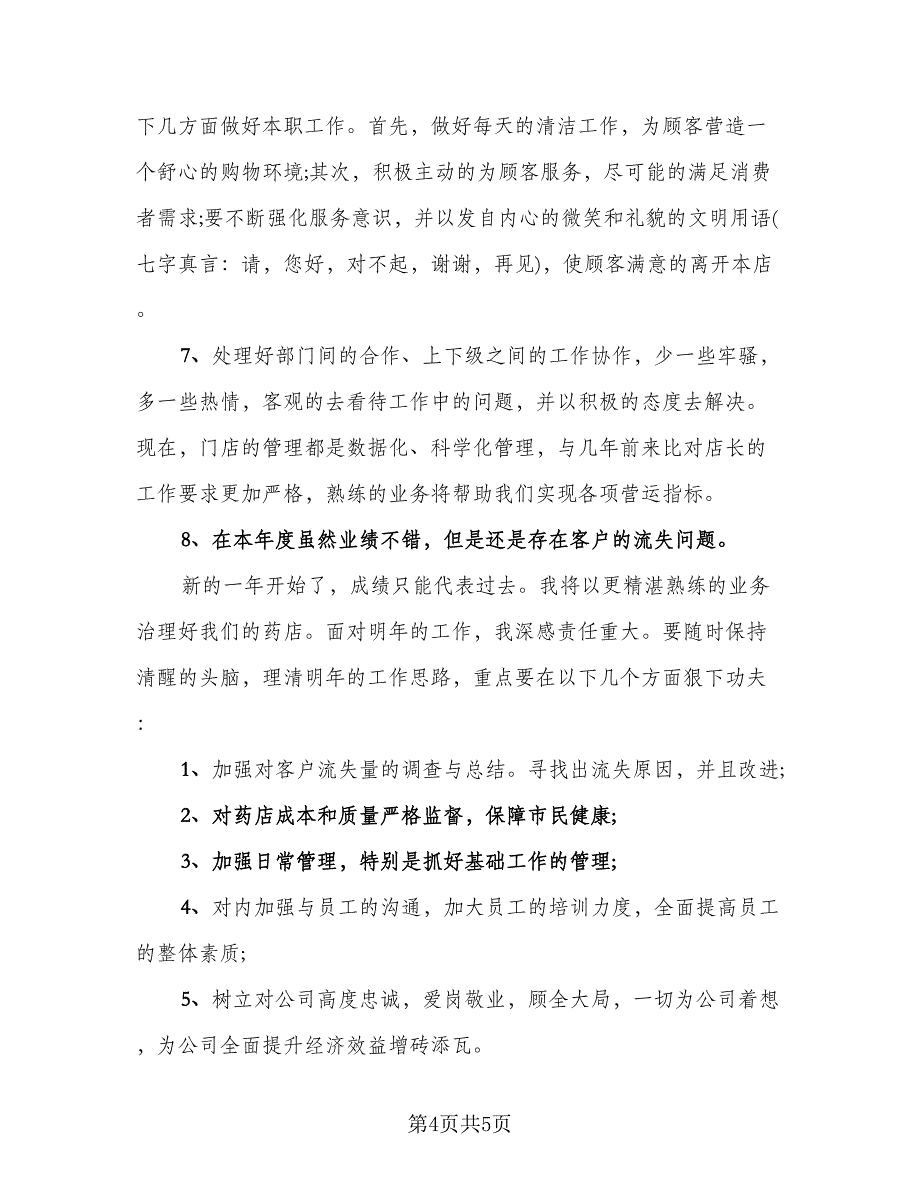 下几方面做好本职工作。首先，做好每天的清洁工作，为顾客营造一
个舒心的购物环境;其次，积极主动的为顾客服务，尽可能的满足消费
者需求;要不断强化服务意识，并以发自内心的微笑和礼貌的文明用语(
七字真言：请，您好，对不起，谢谢，再见)，使顾客满意的离开本店
。
7、处理好部门间的合作、上下级之间的工作协作，少一些牢骚，
多一些热情，客观的去看待工作中的问题，并以积极的态度去解决。
现在，门店的管理都是数据化、科学化管理，与几年前来比对店长的
工作要求更加严格，熟练的业务将帮助我们实现各项营运指标。
8、在本年度虽然业绩不错，但是还是存在客户的流失问题。
新的一年开始了，成绩只能代表过去。我将以更精湛熟练的业务
治理好我们的药店。面对明年的工作，我深感责任重大。要随时保持
清醒的头脑，理清明年的工作思路，重点要在以下几个方面狠下功夫
：
1、加强对客户流失量的调查与总结。寻找出流失原因，并且改进;
2、对药店成本和质量严格监督，保障市民健康;
3、加强日常管理，特别是抓好基础工作的管理;
4、对内加强与员工的沟通，加大员工的培训力度，全面提高员工
的整体素质;
5、树立对公司高度忠诚，爱岗敬业，顾全大局，一切为公司着想
，为公司全面提升经济效益增砖添瓦。
第4页共5页